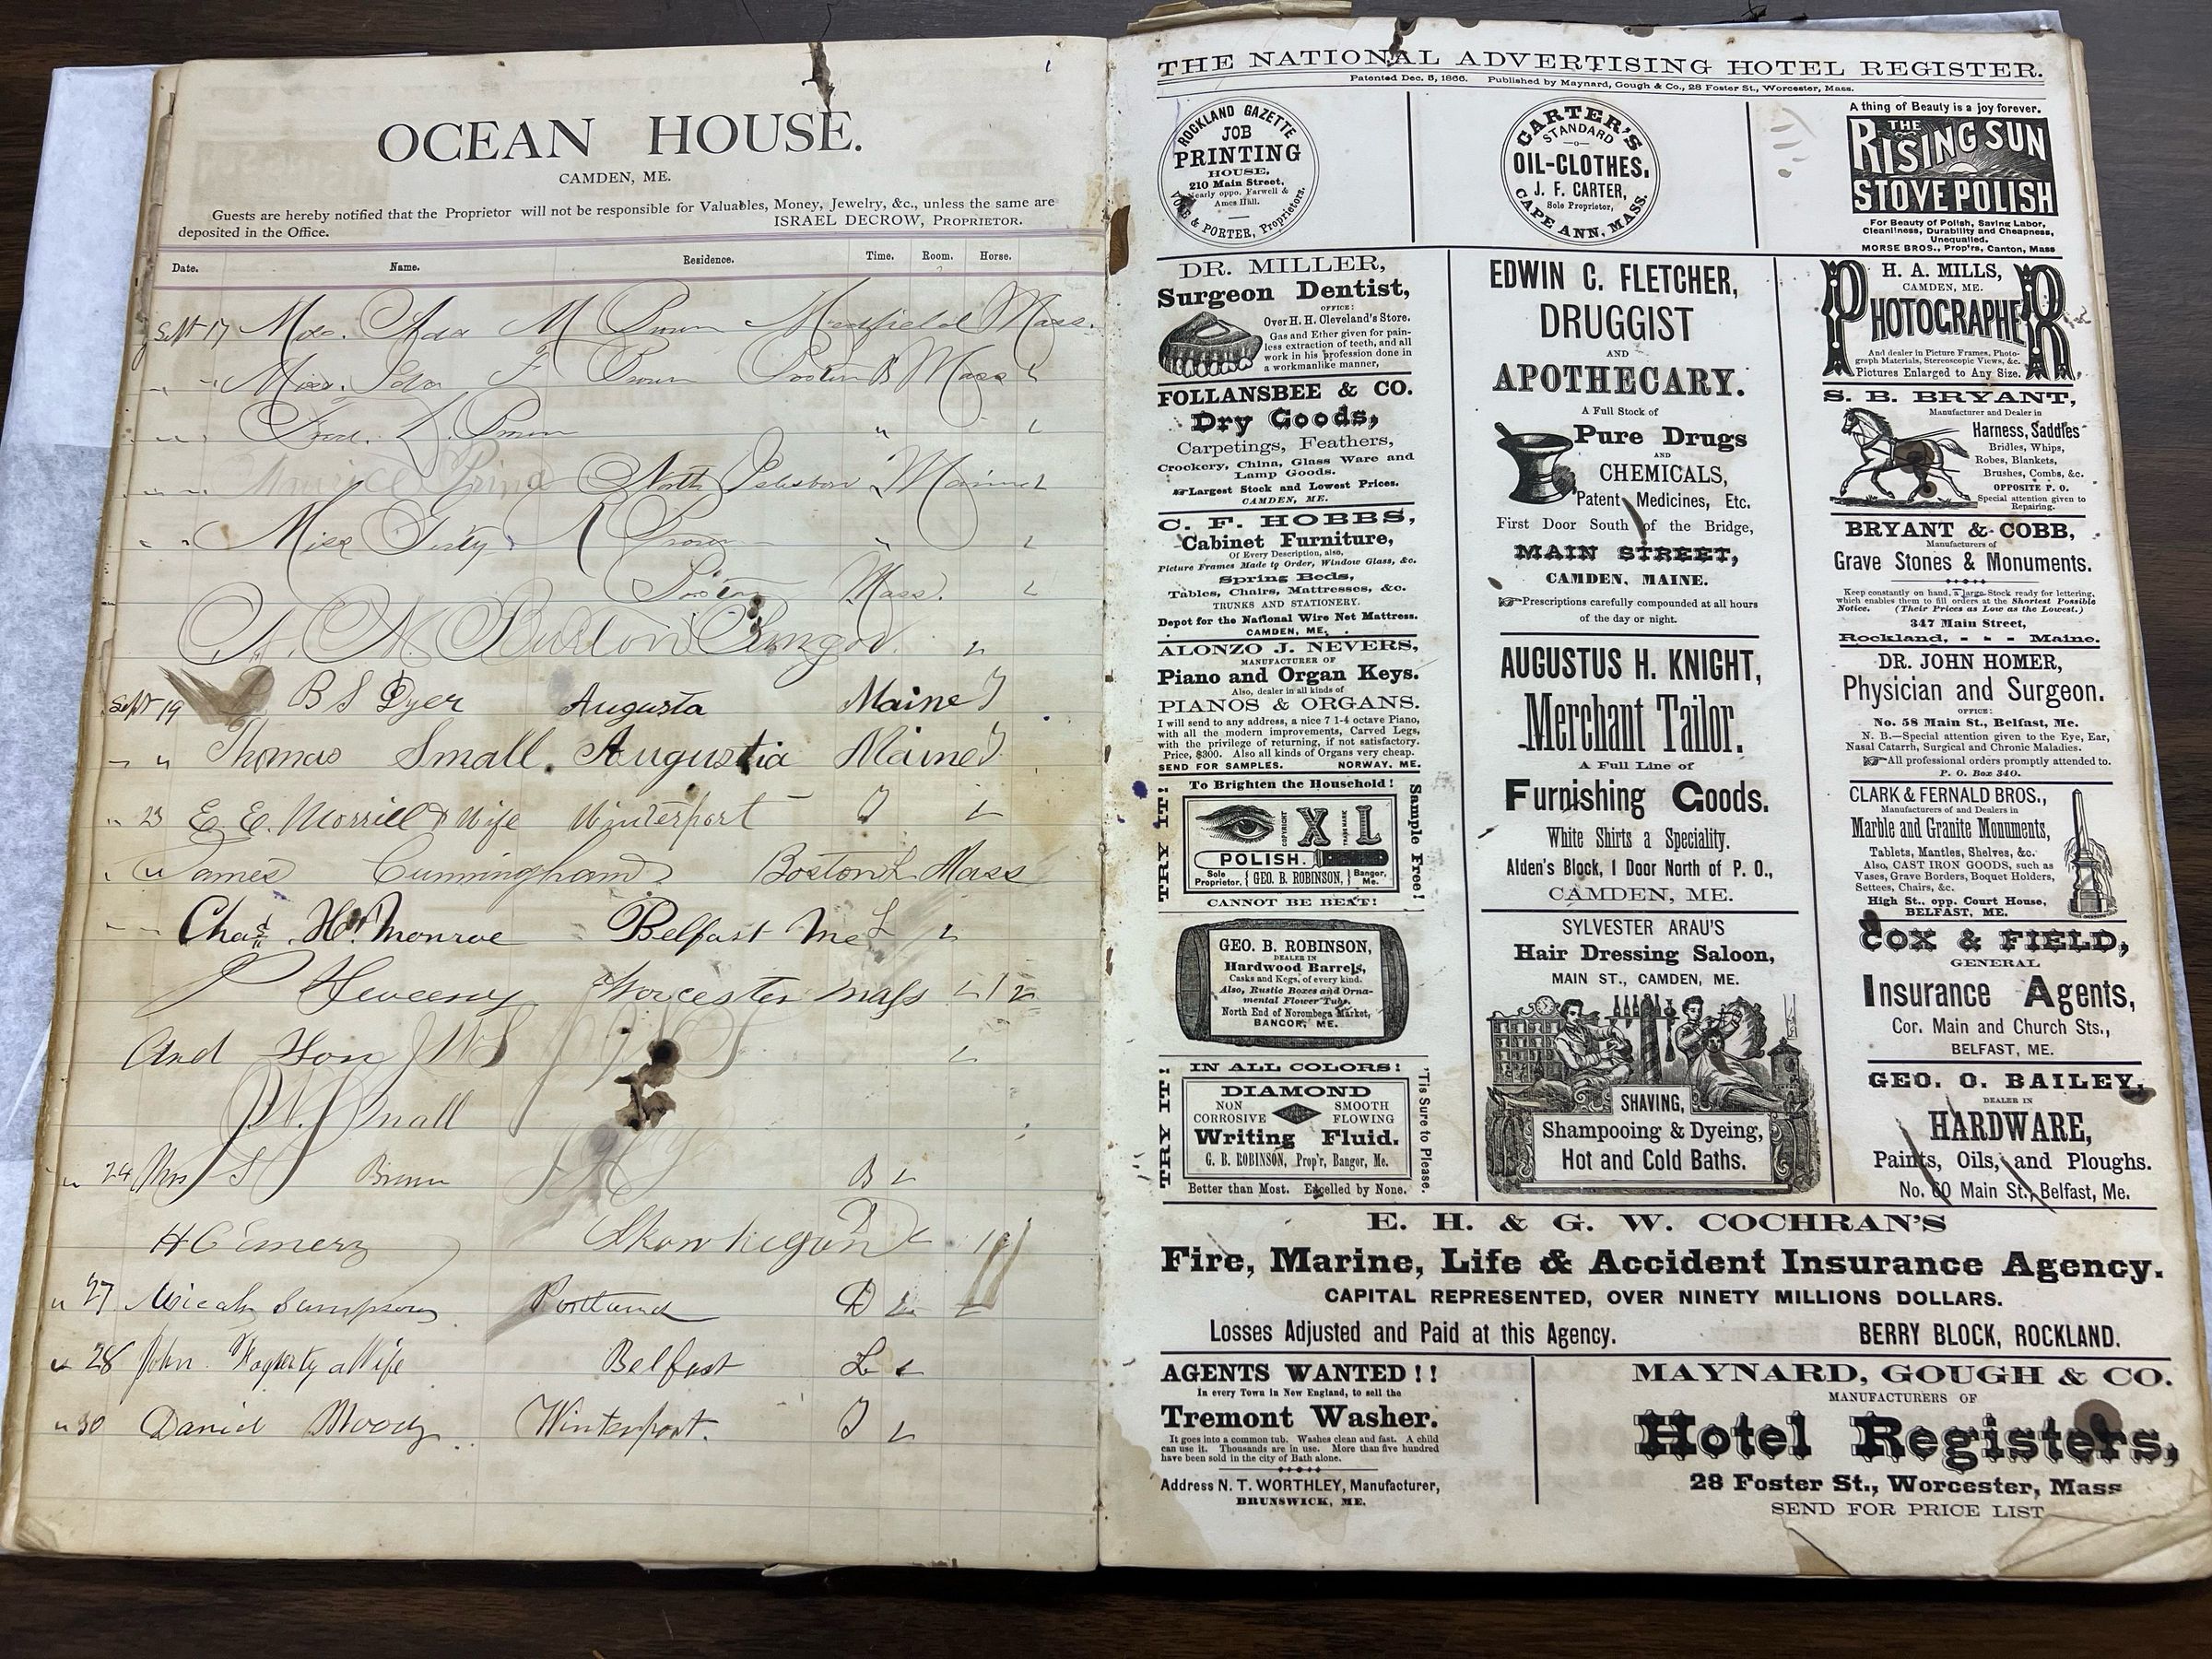 OCEAN HOUSE.
CAMDEN, ME.
Guests are hereby notified that the Proprietor will not be responsible for Valuables, Money, Jewelry, &c., unless the same are
deposited in the Office.
ISRAEL DECROW, PROPRIETOR.
Date. Name. Residence. Time. Room. Horse.
Sept 17 Ada M Brown Mass.
Miss. F Brown Boston B Mass
Fred. Brown "
North Islesboro
Miss Brown
Boston Mass.
Burton Bangor.
Sept 19 B S Dyer Augusta Maine
" Thomas Small. Augustia Maine
" 23 E. E. Morrill & Wife Winterport
" James Cunningham Boston Mass
Chas H. Monroe Belfast Me L
P Sweeny Worcester Mass
And Son
Small
" 24 Mrs S Brown B
H C Emery Skowhegan
" 27 Micah Sampson Portland D
" 28 John Fogherty & Wife Belfast L
" 30 Daniel Moody Winterport.
THE NATIONAL ADVERTISING HOTEL REGISTER.
Patented Dec. 5, 1866. Published by Maynard, Gough & Co., 28 Foster St., Worcester, Mass.
ROCKLAND GAZETTE
JOB
PRINTING
HOUSE,
210 Main Street,
Nearly oppo. Farwell &
Ames Hall.
& PORTER, Proprietors.
CARTER'S
STANDARD
OIL-CLOTHES.
J. F. CARTER,
Sole Proprietor,
CAPE ANN, MASS.
A thing of Beauty is a joy forever.
THE
RISING SUN
STOVE POLISH
For Beauty of Polish, Saving Labor,
Cleanliness, Durability and Cheapness,
Unequalled.
MORSE BROS., Prop'rs, Canton, Mass
DR. MILLER,
Surgeon Dentist,
OFFICE:
Over H. H. Cleveland's Store.
Gas and Ether given for pain-
less extraction of teeth, and all
work in his profession done in
a workmanlike manner,
FOLLANSBEE & CO.
Dry Goods,
Carpetings, Feathers,
Crockery, China, Glass Ware and
Lamp Goods.
☞Largest Stock and Lowest Prices.
CAMDEN, ME.
C. F. HOBBS,
Cabinet Furniture,
Of Every Description, also,
Picture Frames Made to Order, Window Glass, &c.
Spring Beds,
Tables, Chairs, Mattresses, &c.
TRUNKS AND STATIONERY.
Depot for the National Wire Net Mattress.
CAMDEN, ME.
ALONZO J. NEVERS,
MANUFACTURER OF
Piano and Organ Keys.
Also, dealer in all kinds of
PIANOS & ORGANS.
I will send to any address, a nice 7 1-4 octave Piano,
with all the modern improvements, Carved Legs,
with the privilege of returning, if not satisfactory.
Price, $300. Also all kinds of Organs very cheap.
SEND FOR SAMPLES. NORWAY, ME.
To Brighten the Household!
TRY IT!
COPYRIGHT X TRADE MARK L
POLISH.
Sole Proprietor, GEO. B. ROBINSON, Bangor, Me.
Sample Free!
CANNOT BE BEAT!
GEO. B. ROBINSON,
DEALER IN
Hardwood Barrels,
Casks and Kegs, of every kind.
Also, Rustic Boxes and Orna-
mental Flower Tubs.
North End of Norombega Market,
BANGOR, ME.
IN ALL COLORS!
TRY IT!
DIAMOND
NON CORROSIVE SMOOTH FLOWING
Writing Fluid.
G. B. ROBINSON, Prop'r, Bangor, Me.
'Tis Sure to Please.
Better than Most. Excelled by None.
EDWIN C. FLETCHER,
DRUGGIST
AND
APOTHECARY.
A Full Stock of
Pure Drugs
AND
CHEMICALS,
Patent Medicines, Etc.
First Door South of the Bridge,
MAIN STREET,
CAMDEN, MAINE.
☞Prescriptions carefully compounded at all hours
of the day or night.
AUGUSTUS H. KNIGHT,
Merchant Tailor.
A Full Line of
Furnishing Goods.
White Shirts a Speciality.
Alden's Block, 1 Door North of P. O.,
CAMDEN, ME.
SYLVESTER ARAU'S
Hair Dressing Saloon,
MAIN ST., CAMDEN, ME.
SHAVING,
Shampooing & Dyeing,
Hot and Cold Baths.
H. A. MILLS,
CAMDEN, ME.
PHOTOGRAPHER
And dealer in Picture Frames, Photo-
graph Materials, Stereoscopic Views, &c.
Pictures Enlarged to Any Size.
S. B. BRYANT,
Manufacturer and Dealer in
Harness, Saddles
Bridles, Whips,
Robes, Blankets,
Brushes, Combs, &c.
OPPOSITE P. O.
Special attention given to
Repairing.
BRYANT & COBB,
Manufacturers of
Grave Stones & Monuments.
Keep constantly on hand, a large Stock ready for lettering,
which enables them to fill orders at the Shortest Possible
Notice. (Their Prices as Low as the Lowest.)
347 Main Street,
Rockland, - - - Maine.
DR. JOHN HOMER,
Physician and Surgeon.
OFFICE:
No. 58 Main St., Belfast, Me.
N. B.—Special attention given to the Eye, Ear,
Nasal Catarrh, Surgical and Chronic Maladies.
☞All professional orders promptly attended to.
P. O. Box 340.
CLARK & FERNALD BROS.,
Manufacturers of and Dealers in
Marble and Granite Monuments,
Tablets, Mantles, Shelves, &c.
Also, CAST IRON GOODS, such as
Vases, Grave Borders, Boquet Holders,
Settees, Chairs, &c.
High St., opp. Court House,
BELFAST, ME.
COX & FIELD,
GENERAL
Insurance Agents,
Cor. Main and Church Sts.,
BELFAST, ME.
GEO. O. BAILEY,
DEALER IN
HARDWARE,
Paints, Oils, and Ploughs.
No. 60 Main St., Belfast, Me.
E. H. & G. W. COCHRAN'S
Fire, Marine, Life & Accident Insurance Agency.
CAPITAL REPRESENTED, OVER NINETY MILLIONS DOLLARS.
Losses Adjusted and Paid at this Agency. BERRY BLOCK, ROCKLAND.
AGENTS WANTED!!
In every Town in New England, to sell the
Tremont Washer.
It goes into a common tub. Washes clean and fast. A child
can use it. Thousands are in use. More than five hundred
have been sold in the city of Bath alone.
Address N. T. WORTHLEY, Manufacturer,
BRUNSWICK, ME.
MAYNARD, GOUGH & CO.
MANUFACTURERS OF
Hotel Registers,
28 Foster St., Worcester, Mass
SEND FOR PRICE LIST